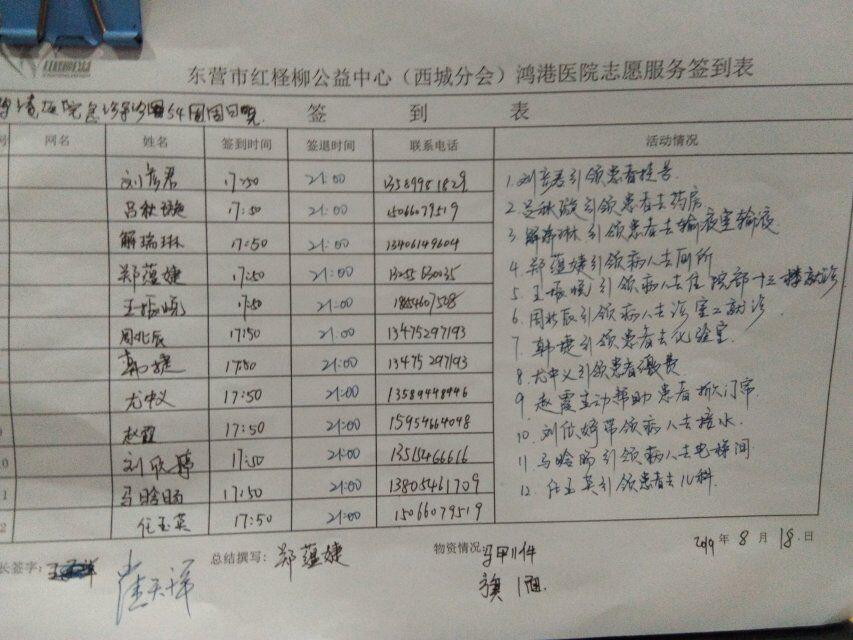 东营市红柽柳公益中心（西城分会）鸿港医院志愿服务签到表
签 到 表
网名 姓名 签到时间 签退时间 联系电话 活动情况
刘彦君 17:50 21:00 13589981829
吕秋璇 17:50 21:00 15066079519
解瑞琳 17:50 21:00 13406149604
郑蕴婕 17:50 21:00 13255613035
王振晓 17:50 21:00 18654607508
周兆辰 17:50 21:00 13475297193
韩婕 17:50 21:00 13475297193
尤中义 17:50 21:00 13589448946
赵霞 17:50 21:00 15954664048
刘欣婷 17:50 21:00 13515466616
马晗旸 17:50 21:00 13805461709
任玉英 17:50 21:00 15066079519
1. 刘彦君引领患者挂号
2. 吕秋璇引领患者去药房
3 解瑞琳引领患者去输液室输液
4. 郑蕴婕引领病人去厕所
5. 王振晓引领病人去住院部十三楼就诊
6. 周兆辰引领病人去诊室二就诊
7. 韩婕引领患者去化验室
8. 尤中义引领患者缴费
9. 赵霞主动帮助患者掀门帘
10. 刘欣婷带领病人去接水
11 马晗旸引领病人去电梯间
12. 任玉英引领患者去儿科
长签字： 总结撰写：郑蕴婕 物资情况： 马甲11件
旗1面
2019年8月18日